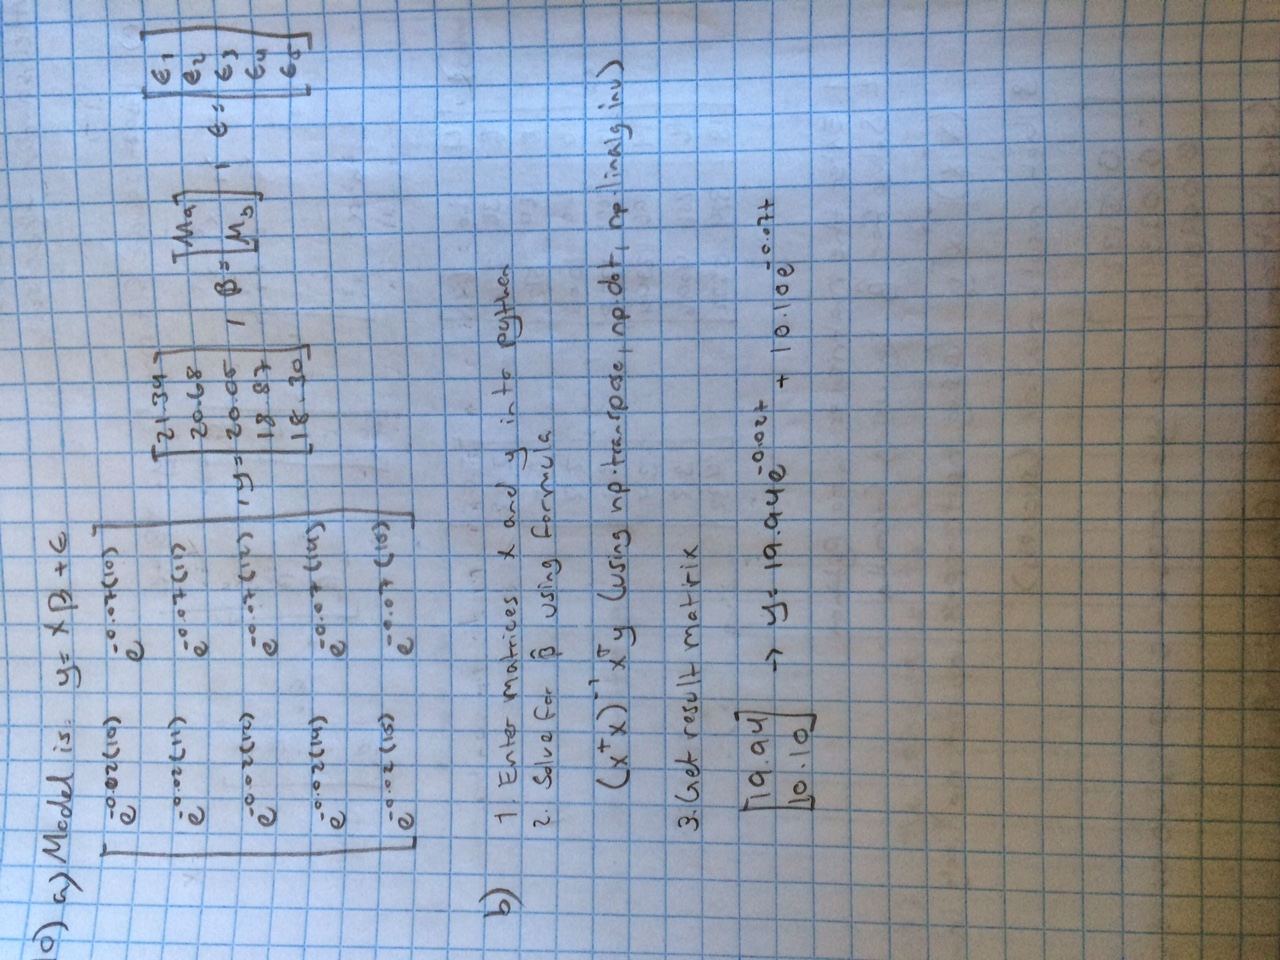 10) a) Model is: y = Xβ + ϵ
[ e^-0.02(10) e^-0.07(10)
e^-0.02(11) e^-0.07(11)
e^-0.02(12) e^-0.07(12)
e^-0.02(14) e^-0.07(14)
e^-0.02(15) e^-0.07(15) ]
, y = [ 21.34
20.68
20.05
18.87
18.30 ]
, β = [ MA
MB ]
, ϵ = [ ϵ1
ϵ2
ϵ3
ϵ4
ϵ5 ]
b) 1. Enter matrices X and y into python
2. Solve for β̂ using formula
(X^T X)^-1 X^T y (using np.transpose, np.dot, np.linalg inv)
3. Get result matrix
[ 19.94
10.10 ] → y = 19.94e^-0.02t + 10.10e^-0.07t